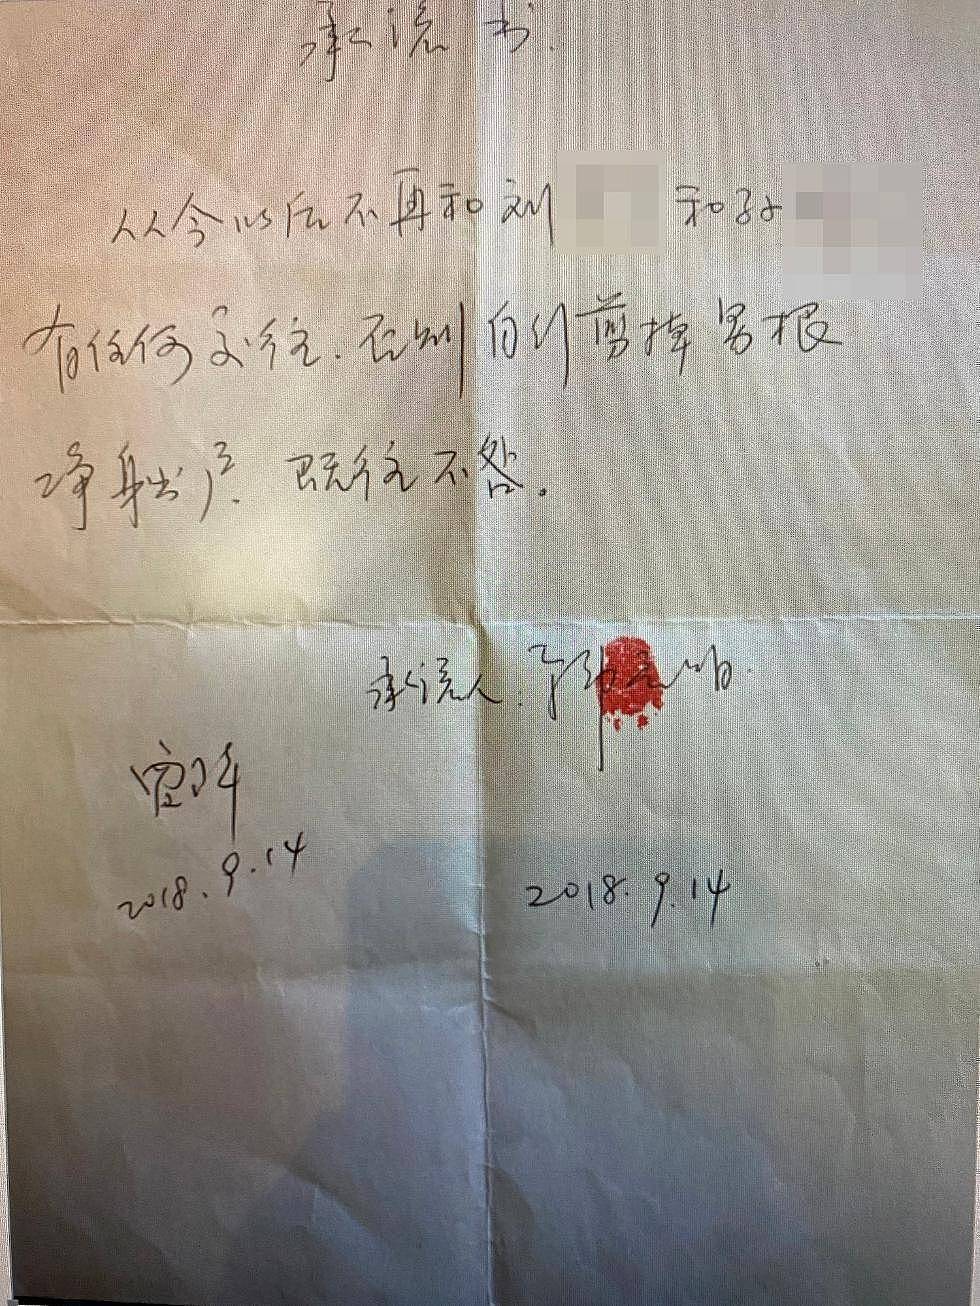 承诺书.
从今以后不再和刘 和孙
有任何交往.否则自行剪掉男根
净身出户.既往不咎。
承诺人:
2018.9.14
2018.9.14